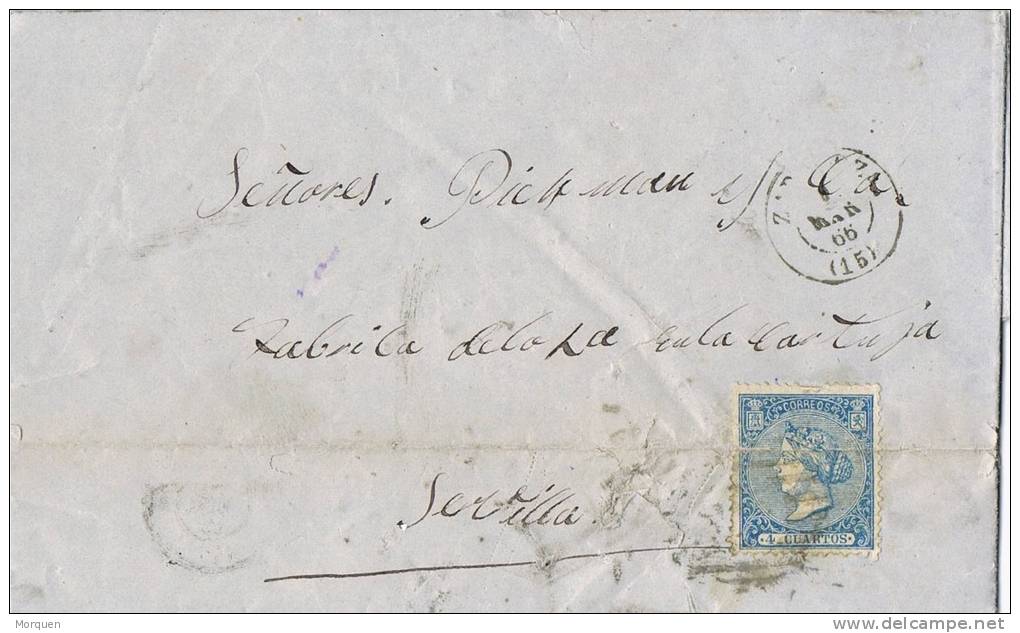 Señores. Pickman y Ca
MAR
66
(15)
Fabrica de loza en la Cartuja
CORREOS
Sevilla.
4 CUARTOS
Morquen
delcampe.net